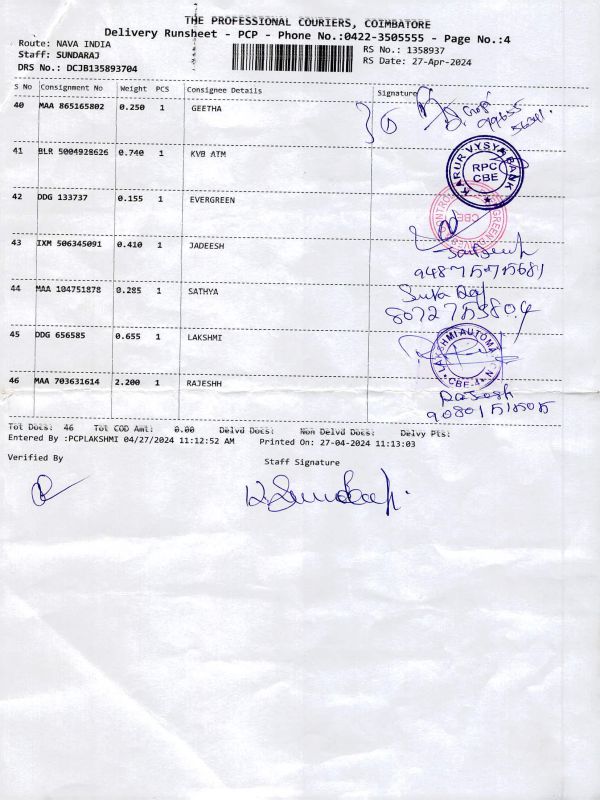 THE PROFESSIONAL COURIERS, COIMBATORE
Delivery Runsheet - PCP - Phone No.:0422-3505555 - Page No.:4
Route: NAVA INDIA
RS No.: 1358937
Staff: SUNDARAJ
RS Date: 27-Apr-2024
DRS No.: DCJB135893704
S No Consignment No Weight PCS Consignee Details Signature
40 MAA 865165802 0.250 1 GEETHA
41 BLR 5004928626 0.740 1 KVB ATM
KARUR VYSYA BANK
RPC
CBE
42 DDG 133737 0.155 1 EVERGREEN
CBE
43 IXM 506345091 0.410 1 JADEESH
44 MAA 104751878 0.285 1 SATHYA
8072753804
45 DDG 656585 0.655 1 LAKSHMI
LAKSHMI AUTOMA
CBE-4
46 MAA 703631614 2.200 1 RAJESHH
Rajesh
Tot Docs: 46 Tot COD Amt: 0.00 Delvd Docs: Non Delvd Docs: Delvy Pts:
Entered By :PCPLAKSHMI 04/27/2024 11:12:52 AM Printed On: 27-04-2024 11:13:03
Verified By
Staff Signature